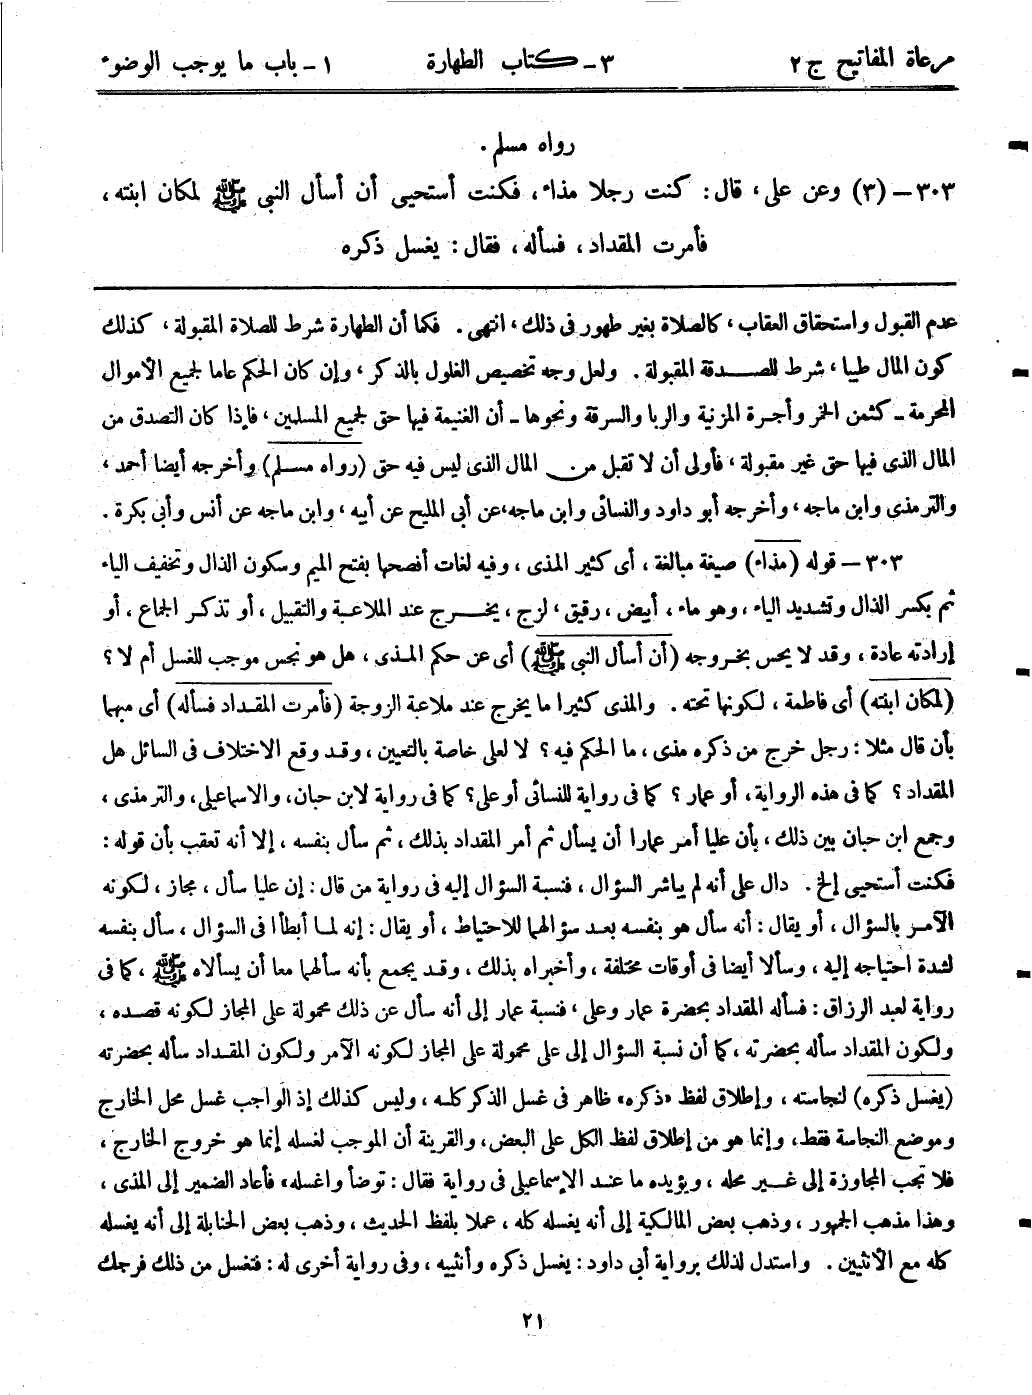 مرعاة المفاتيح ج٢ ٣ـ كتاب الطهارة ١ـ باب ما يوجب الوضوء
رواه مسلم.
٣٠٣ – (٣) وعن على، قال: كنت رجلا مذاء، فكنت أستحيى أن أسأل النبى ﷺ لمكان ابنته،
فأمرت المقداد، فسأله، فقال: يغسل ذكره
عدم القبول واستحقاق العقاب، كالصلاة بغير طهور فى ذلك، انتهى. فكما أن الطهارة شرط للصلاة المقبولة، كذلك
كون المال طيبا، شرط للصدقة المقبولة. ولعل وجه تخصيص الغلول بالذكر، وإن كان الحكم عاما لجميع الأموال
المحرمة ـ كثمن الخمر وأجرة المزنية والربا والسرقة ونحوها ـ أن الغنيمة فيها حق لجميع المسلمين، فإذا كان التصدق من
المال الذى فيها حق غير مقبولة، فأولى أن لا تقبل من المال الذى ليس فيه حق (رواه مسلم) وأخرجه أيضا أحمد،
والترمذى وابن ماجه، وأخرجه أبو داود والنسائى وابن ماجه،عن أبى المليح عن أبيه، وابن ماجه عن أنس وأبى بكرة.
٣٠٣ – قوله (مذاء) صيغة مبالغة، أى كثير المذى، وفيه لغات أفصحها بفتح الميم وسكون الذال وتخفيف الياء
ثم بكسر الذال وتشديد الياء، وهو ماء، أبيض، رقيق، لزج، يخرج عند الملاعبة والتقبيل، أو تذكر الجماع، أو
إرادته عادة، وقد لا يحس بخروجه (أن أسأل النبى ﷺ) أى عن حكم المذى، هل هو نجس موجب للغسل أم لا؟
(لمكان ابنته) أى فاطمة، لكونها تحته. والمذى كثيرا ما يخرج عند ملاعبة الزوجة (فأمرت المقداد فسأله) أى مبهما
بأن قال مثلا: رجل خرج من ذكره مذى، ما الحكم فيه؟ لا لعلى خاصة بالتعيين، وقد وقع الاختلاف فى السائل هل
المقداد؟ كما فى هذه الرواية، أو عمار؟ كما فى رواية للنسائى أو على؟ كما فى رواية لابن حبان، والاسماعيلى، والترمذى،
وجمع ابن حبان بين ذلك، بأن عليا أمر عمارا أن يسأل ثم أمر المقداد بذلك، ثم سأل بنفسه، إلا أنه تعقب بأن قوله:
فكنت أستحيى إلخ. دال على أنه لم يباشر السؤال، فنسبة السؤال إليه فى رواية من قال: إن عليا سأل، مجاز، لكونه
الآمر بالسؤال، أو يقال: أنه سأل هو بنفسه بعد سؤالهما للاحتياط، أو يقال: إنه لما أبطأا فى السؤال، سأل بنفسه
لشدة احتياجه إليه، وسألا أيضا فى أوقات مختلفة، وأخبراه بذلك، وقد يجمع بأنه سألهما معا أن يسألاه ﷺ، كما فى
رواية لعبد الرزاق: فسأله المقداد بحضرة عمار وعلى، فنسبة عمار إلى أنه سأل عن ذلك محمولة على المجاز لكونه قصده،
ولكون المقداد سأله بحضرته، كما أن نسبة السؤال إلى على محمولة على المجاز لكونه الآمر ولكون المقداد سأله بحضرته
(يغسل ذكره) لنجاسته، وإطلاق لفظ «ذكره» ظاهر فى غسل الذكر كله، وليس كذلك إذ الواجب غسل محل الخارج
وموضع النجاسة فقط، وإنما هو من إطلاق لفظ الكل على البعض، والقرينة أن الموجب لغسله إنما هو خروج الخارج،
فلا تجب المجاوزة إلى غير محله، ويؤيده ما عند الإسماعيلى فى رواية فقال: توضأ واغسله» فأعاد الضمير إلى المذى،
وهذا مذهب الجمهور، وذهب بعض المالكية إلى أنه يغسله كله، عملا بلفظ الحديث، وذهب بعض الحنابلة إلى أنه يغسله
كله مع الأنثيين. واستدل لذلك برواية أبى داود: يغسل ذكره وأنثييه، وفى رواية أخرى له: فتغسل من ذلك فرجك
٢١